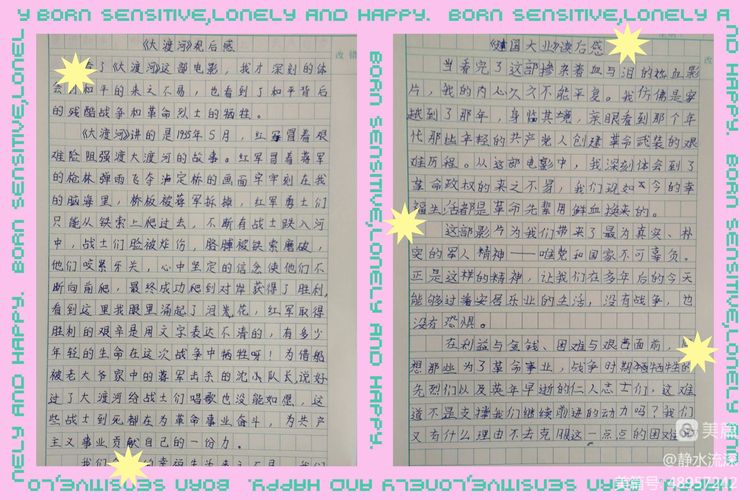 Y BORN SENSITIVE,LONELY AND HAPPY. BORN SENSITIVE,LONELY A
《大渡河》观后感
看了《大渡河》这部电影，我才深刻的体
会了和平的来之不易，也看到了和平背后
的残酷战争和革命烈士的牺牲。
《大渡河》讲的是1935年5月，红军冒着艰
难险阻强渡大渡河的故事。红军冒着蒋军
的枪林弹雨飞夺泸定桥的画面牢牢刻在我
的脑海里，桥板被蒋军拆掉，红军勇士们
只能从铁索上爬过去，不断有战士跌入河
中，战士们脸被炸伤，胳膊被铁索磨破，
他们咬紧牙关，心中坚定的信念使他们不
断向前爬，最终成功爬到对岸获得了胜利，
看到这里我眼里涌起了泪花，红军取得
胜利的艰辛是用文字表达不清的，有多少
年轻的生命在这次战争中牺牲呀！为借船
被老大爷家中的蒋军击杀的沈小队长，说好
过了大渡河给战士们唱歌也没能如愿，这
些战士到死都在为革命事业奋斗，为共产
主义事业贡献自己的一份力。
改错
《建国大业》读后感
当看完了这部掺杂着血与泪的热血影
片，我的内心久久不能平复。我仿佛是穿
越到了那年，身临其境，亲眼看到那个年
代那些年轻的共产党人创建革命武装的艰
难历程。从这部电影中，我深刻体会到了
革命政权的来之不易，我们现如今的幸
福生活都是革命先辈用鲜血换来的。
这部影片为我们带来了最为真实、朴
实的军人精神——唯党和国家不可辜负。
正是这样的精神，让我们在多年后的今天
能够过着安居乐业的生活，没有战争，也
没有恐惧。
在利益与金钱、困难与艰苦面前，
想那些为了革命事业，战争时期牺牲的
先烈们以及英年早逝的仁人志士们，这难
道不是支撑我们继续前进的动力吗？我们
又有什么理由不去克服这一点点的困难
改
BORN SENSITIVE,LONELY AND HAPPY.
NELY AND HAPPY. BORN SENSITIVE,LONEL
ND HAPPY. BORN SENSITIVE,LONELY AND
BORN SENSITIVE,LO
美篇
@静水流深
美篇号:48957242